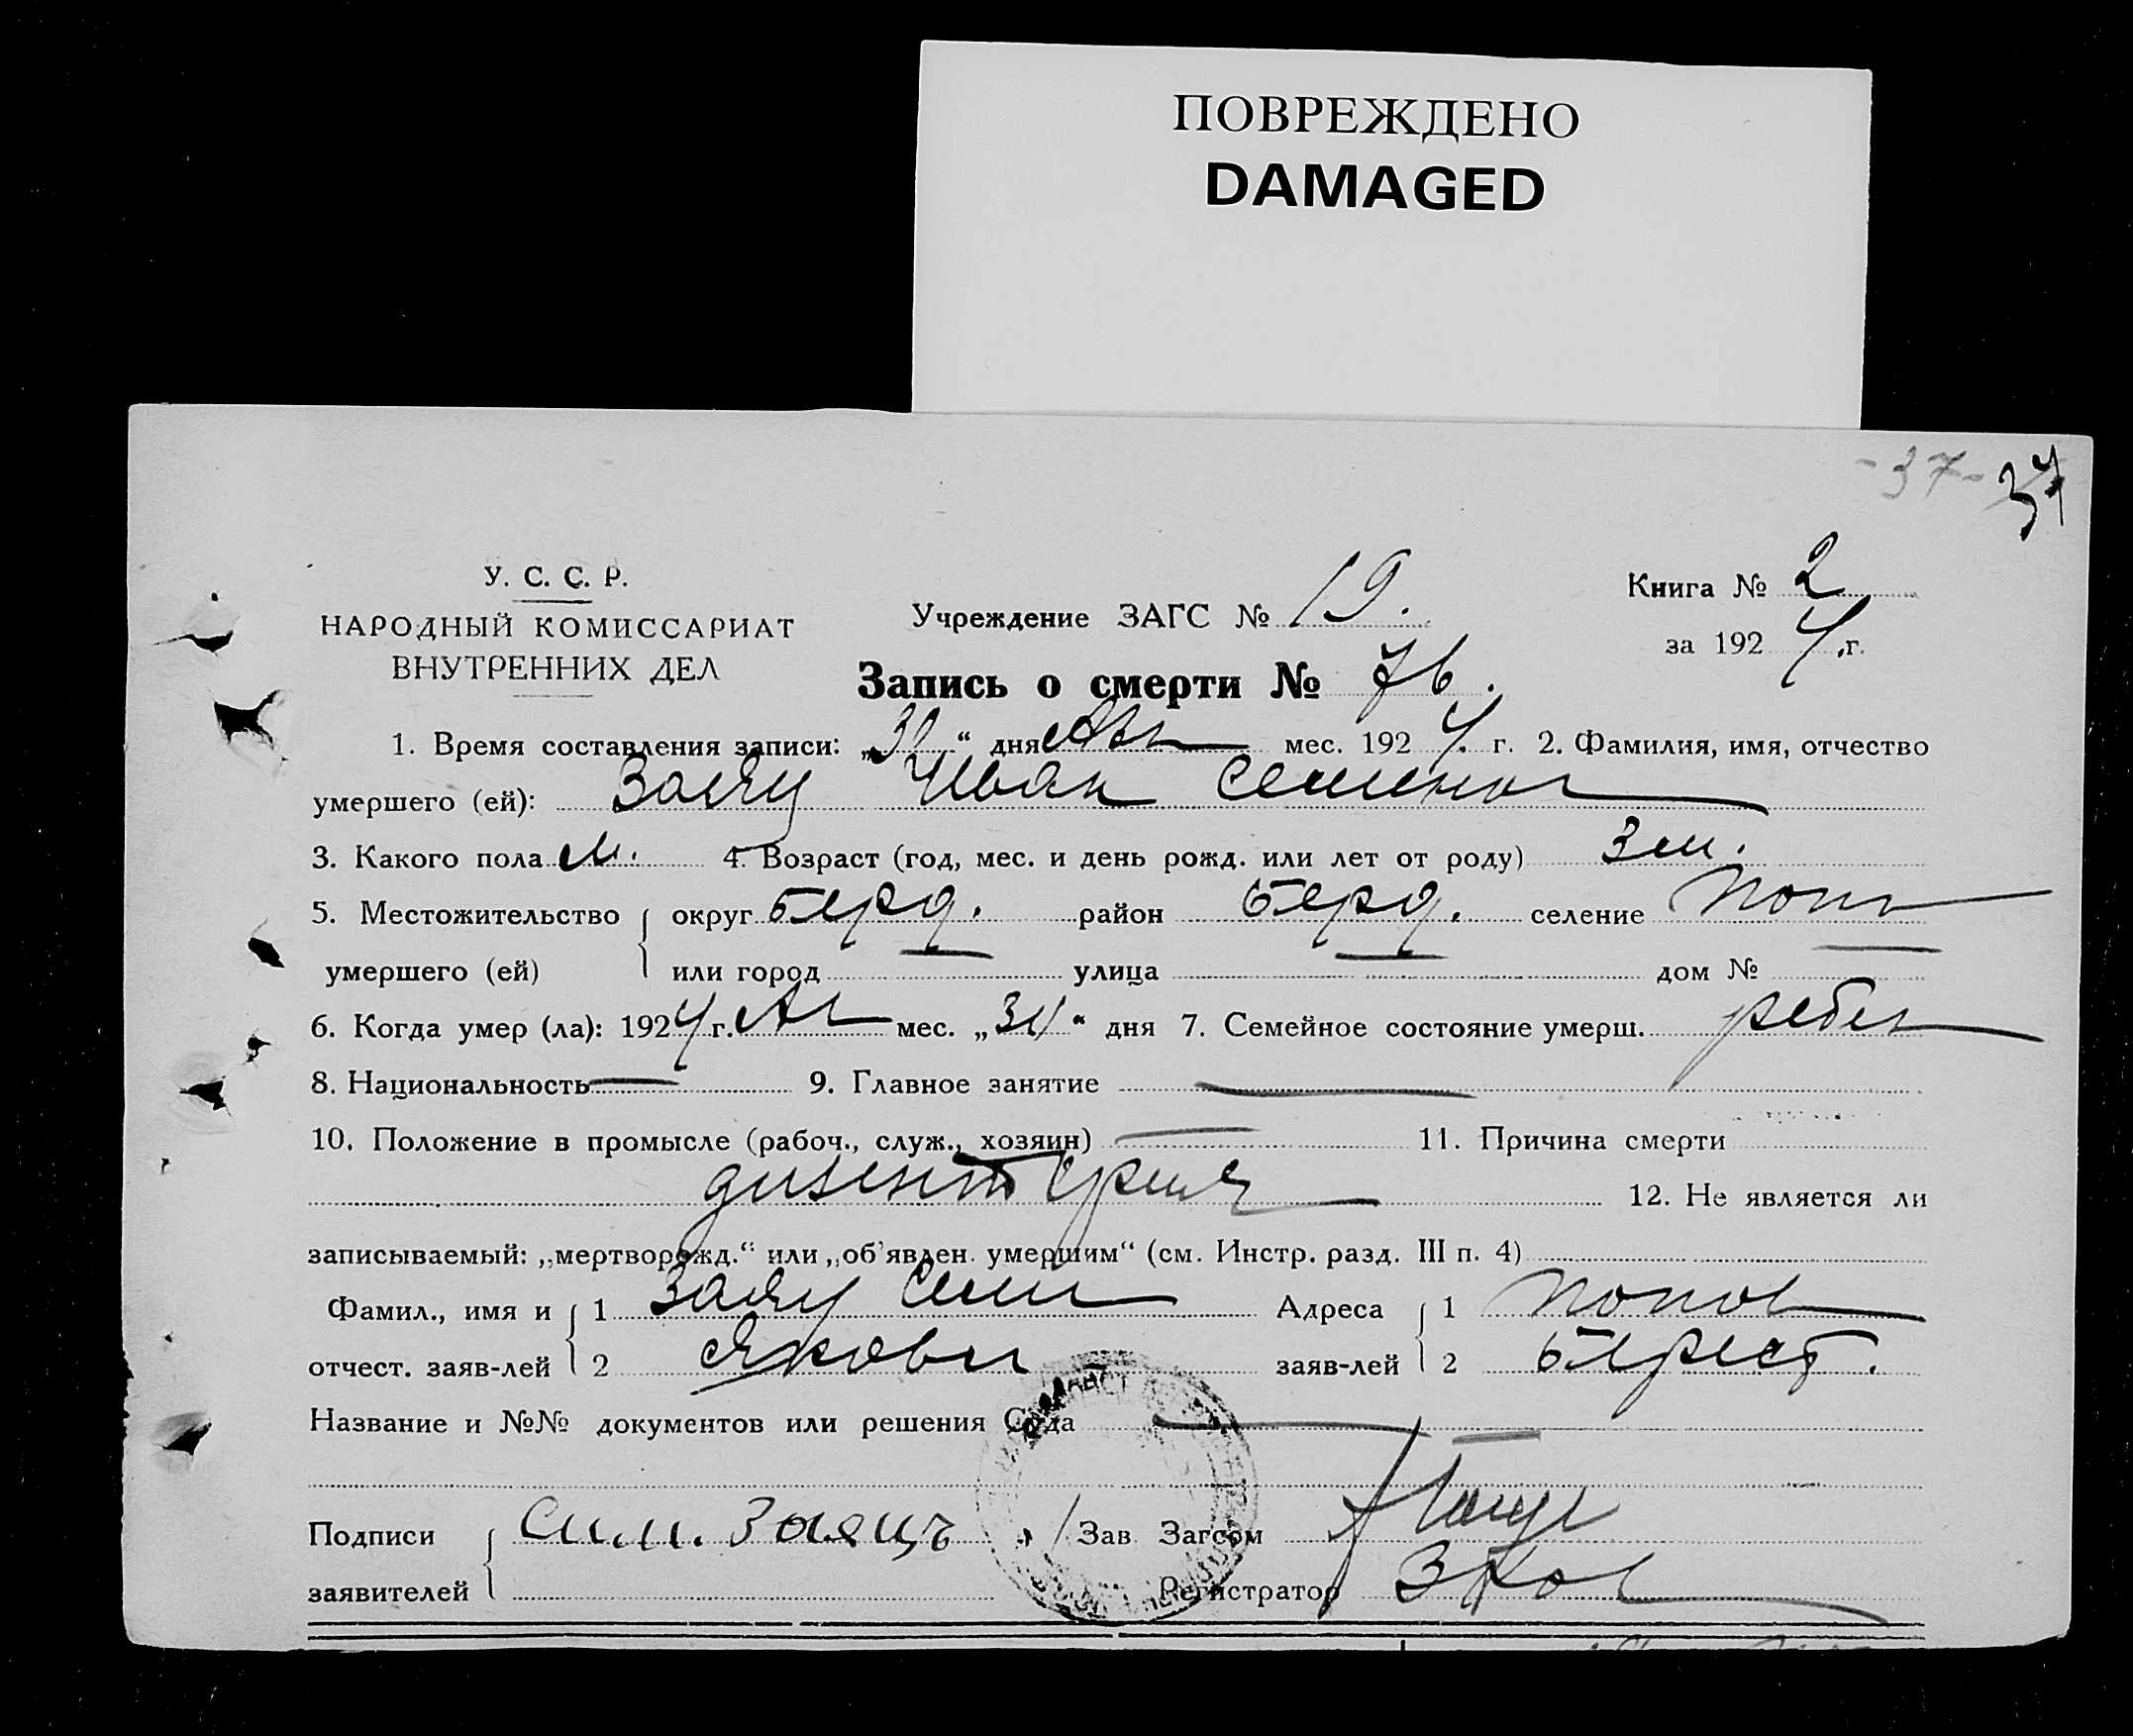 ПОВРЕЖДЕНО
DAMAGED
-37- 37
У. С. С. Р.
НАРОДНЫЙ КОМИССАРИАТ
ВНУТРЕННИХ ДЕЛ
Учреждение ЗАГС № 19.
Книга № 2
за 1924 г.
Запись о смерти № 76.
1. Время составления записи: „ “ дня Авг мес. 1924 г. 2. Фамилия, имя, отчество
умершего (ей): Заяц Иван Семенов
3. Какого пола м. 4. Возраст (год, мес. и день рожд. или лет от роду) 3 м.
5. Местожительство округ Берд. район Берд. селение Попов
умершего (ей) или город — улица — дом № —
6. Когда умер (ла): 1924 г. Авг мес. „31“ дня 7. Семейное состояние умерш. ребен
8. Национальность — 9. Главное занятие —
10. Положение в промысле (рабоч., служ., хозяин) — 11. Причина смерти
дизентерия 12. Не является ли
записываемый: „мертворожд.“ или „об'явлен. умершим“ (см. Инстр. разд. III п. 4)
Фамил., имя и 1 Заяц Сем Адреса 1 Попов
отчест. заяв-лей 2 Яковл заяв-лей 2 Берест.
Название и №№ документов или решения Суда —
Подписи Сим. Заяцъ Зав. Загсом
заявителей Регистратор